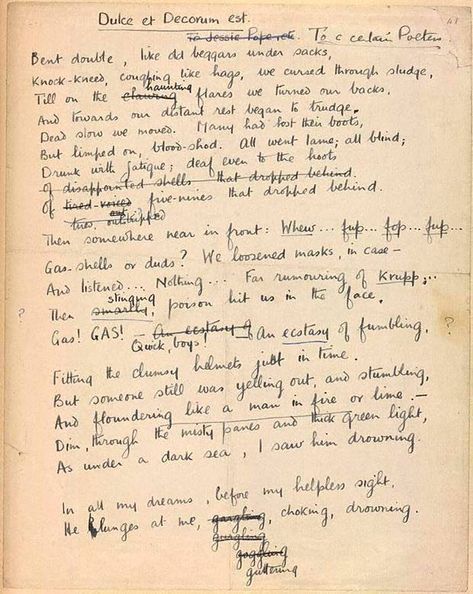 Dulce et Decorum est.
To Jessie Pope etc. To a certain Poetess
Bent double, like old beggars under sacks,
Knock-kneed, coughing like hags, we cursed through sludge,
haunting
Till on the clawing flares we turned our backs,
And towards our distant rest began to trudge.
Dead slow we moved. Many had lost their boots,
But limped on, blood-shod. All went lame; all blind;
Drunk with fatigue; deaf even to the hoots
of disappointed shells that dropped behind.
Of tired-voiced five-nines that dropped behind.
outstripped
Then somewhere near in front: Whew... fup... fop... fup...
Gas-shells or duds? We loosened masks, in case —
And listened... Nothing... Far rumouring of Krupp;...
stinging
Then smartly, poison hit us in the face.
? Gas! GAS! — An ecstasy of An ecstasy of fumbling, ?
Quick, boys!
Fitting the clumsy helmets just in time.
But someone still was yelling out, and stumbling,
And floundering like a man in fire or lime. —
Dim, through the misty panes and thick green light,
As under a dark sea, I saw him drowning.
In all my dreams, before my helpless sight,
He plunges at me, gargling, choking, drowning.
gurgling
goggling
guttering